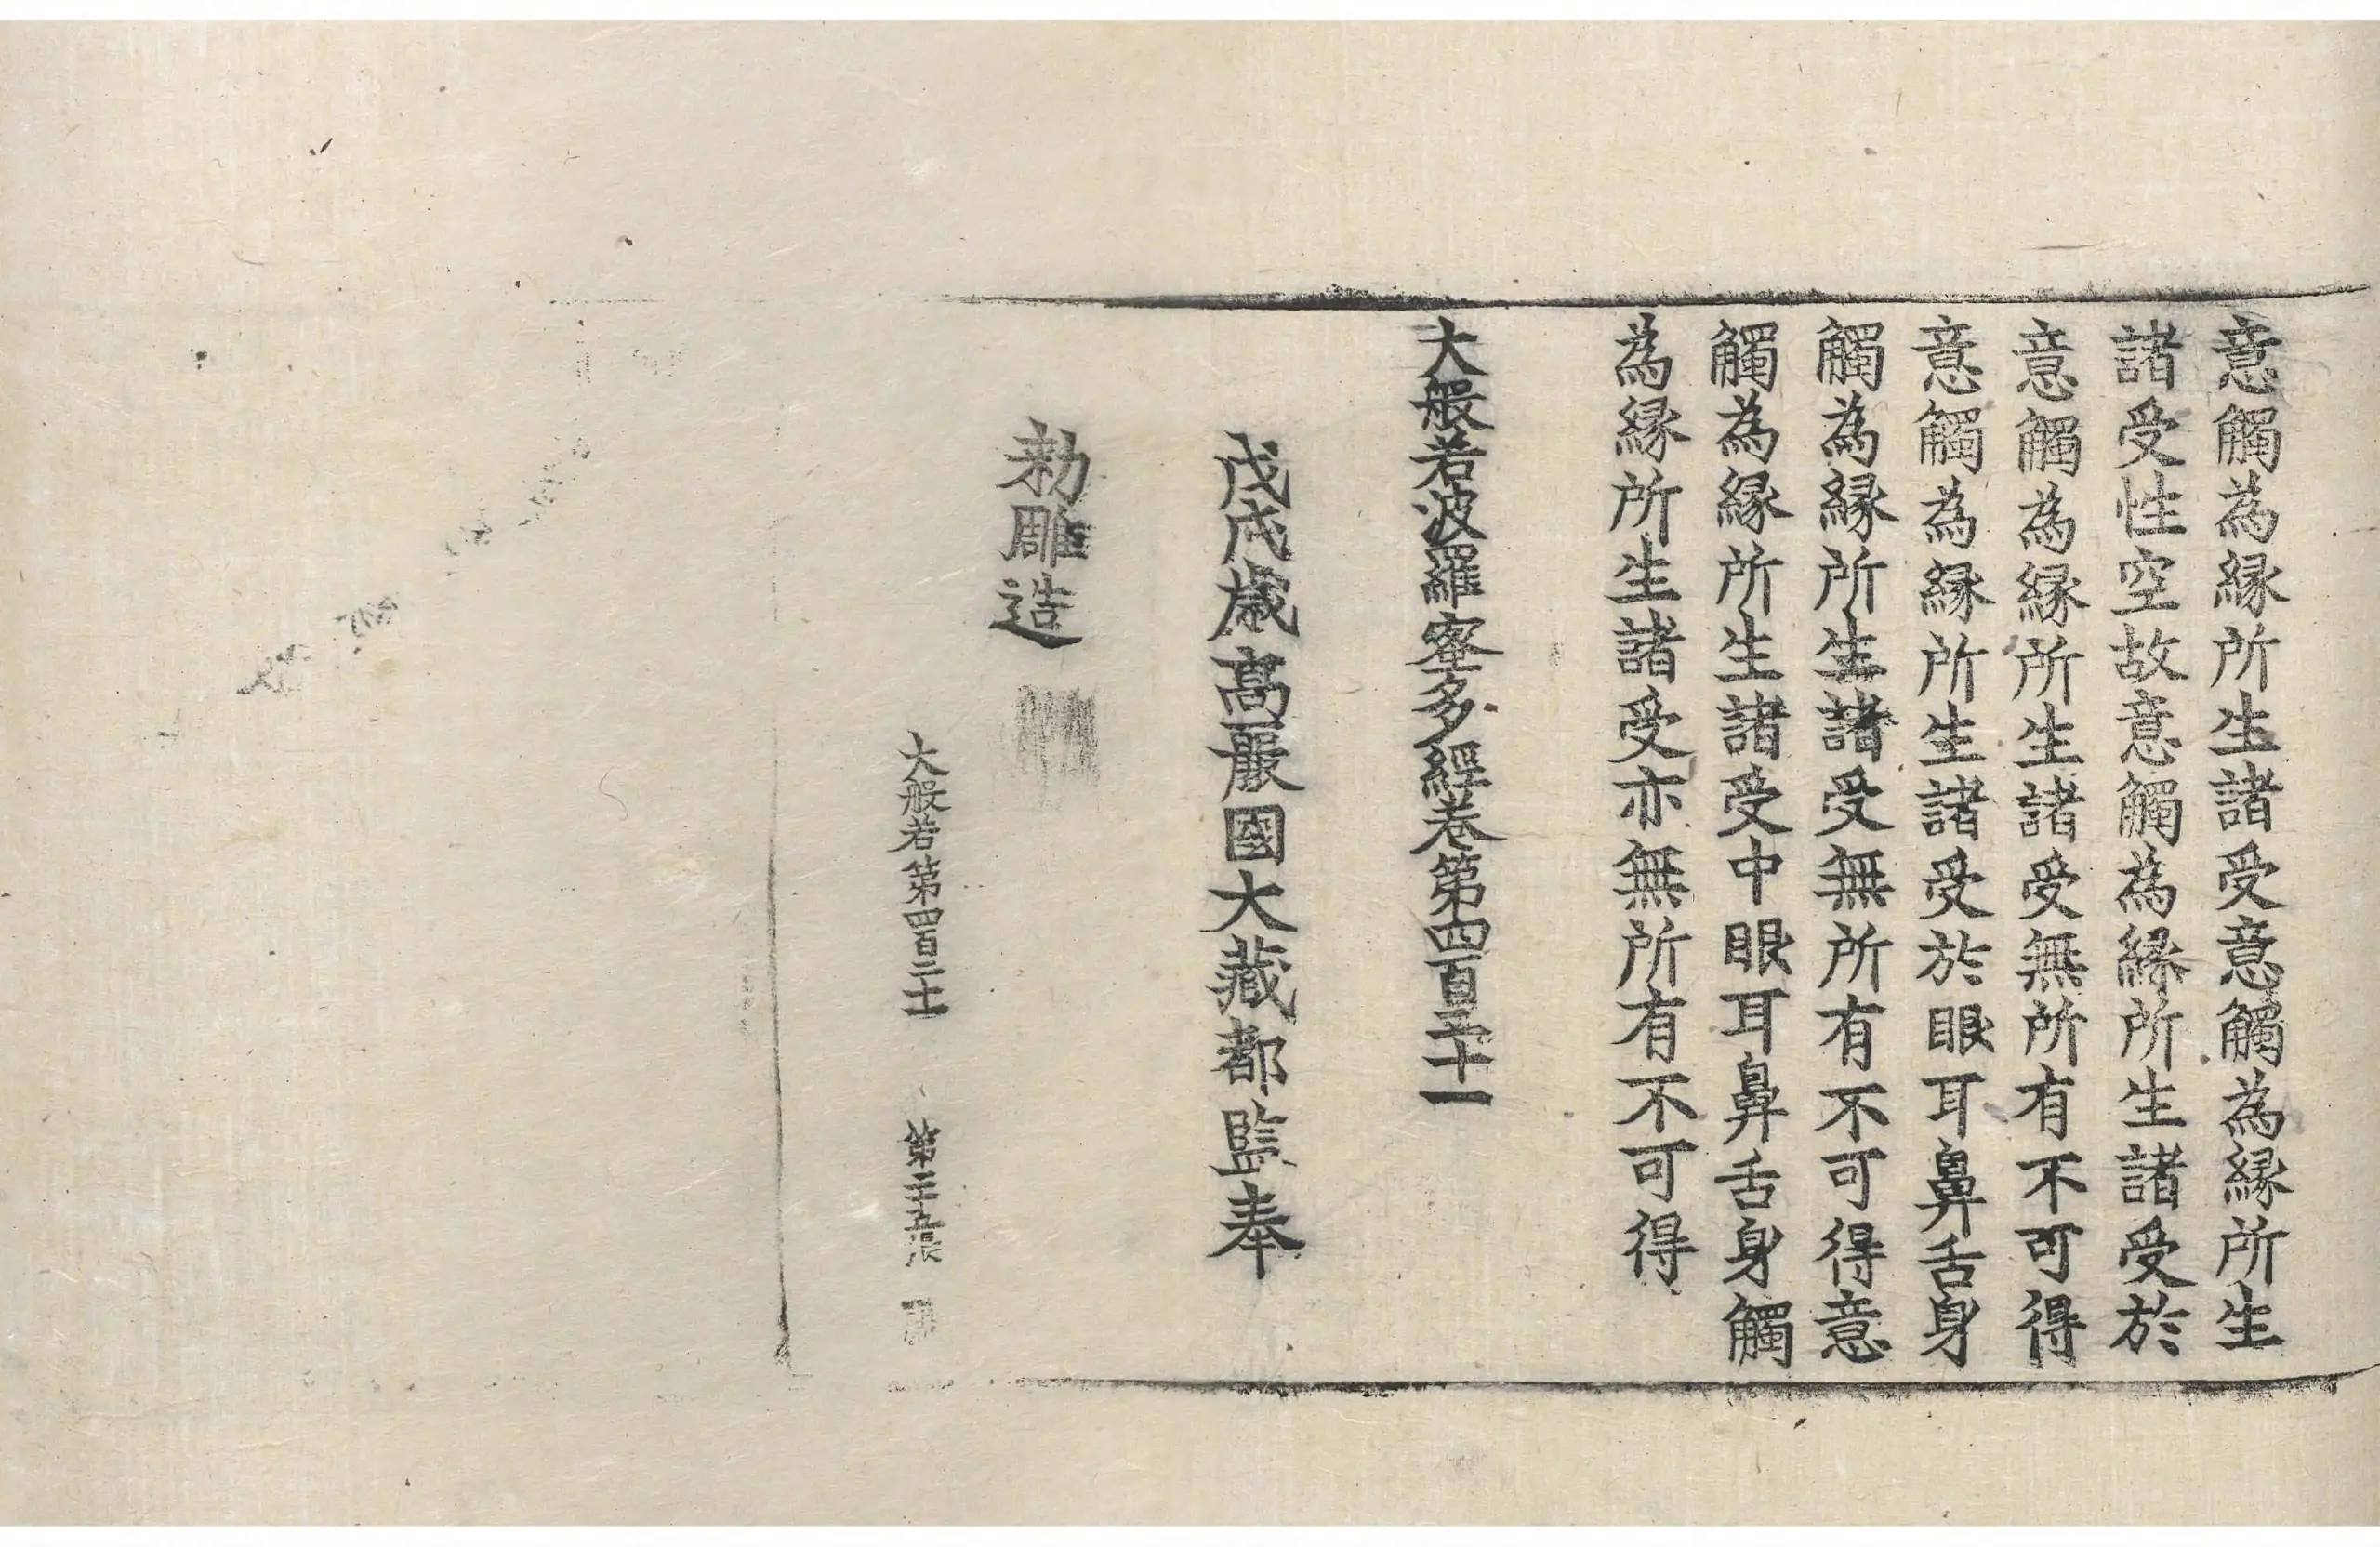 意觸為縁所生諸受意觸為縁所生
諸受性空故意觸為縁所生諸受於
意觸為縁所生諸受無所有不可得
意觸為縁所生諸受於眼耳鼻舌身
觸為縁所生諸受無所有不可得意
觸為縁所生諸受中眼耳鼻舌身觸
為縁所生諸受亦無所有不可得
大般若波羅蜜多經卷第四百二十一
戊戌歲高麗國大藏都監奉
勅雕造
大般若第四百二十一 第二十五張